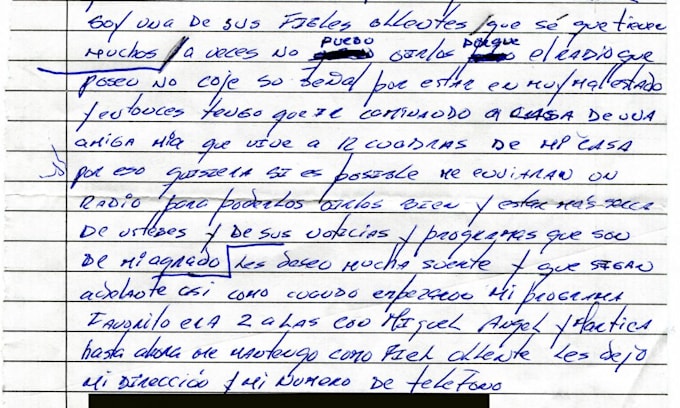 Soy una de sus Fieles ollentes / que sé que tienen
muchos / a veces no puedo oirlos porque el radio que
poseo no coje su señal por estar en muy mal estado
y entonces tengo que ir caminando a casa de una
amiga mia que vive a 12 cuadras de mi casa
por eso quisiera si es posible me enviaran un
radio para poderlos oirlos bien y estar más serca
de ustedes y de sus noticias y programas que son
de mi agrado Les deseo mucha suerte y que sigan
adelante asi como cuando empezaron mi programa
Favorito era 2 a las con Miguel Angel y Martica
hasta ahora me mantengo como Fiel ollente les dejo
mi dirección y mi numero de telefono